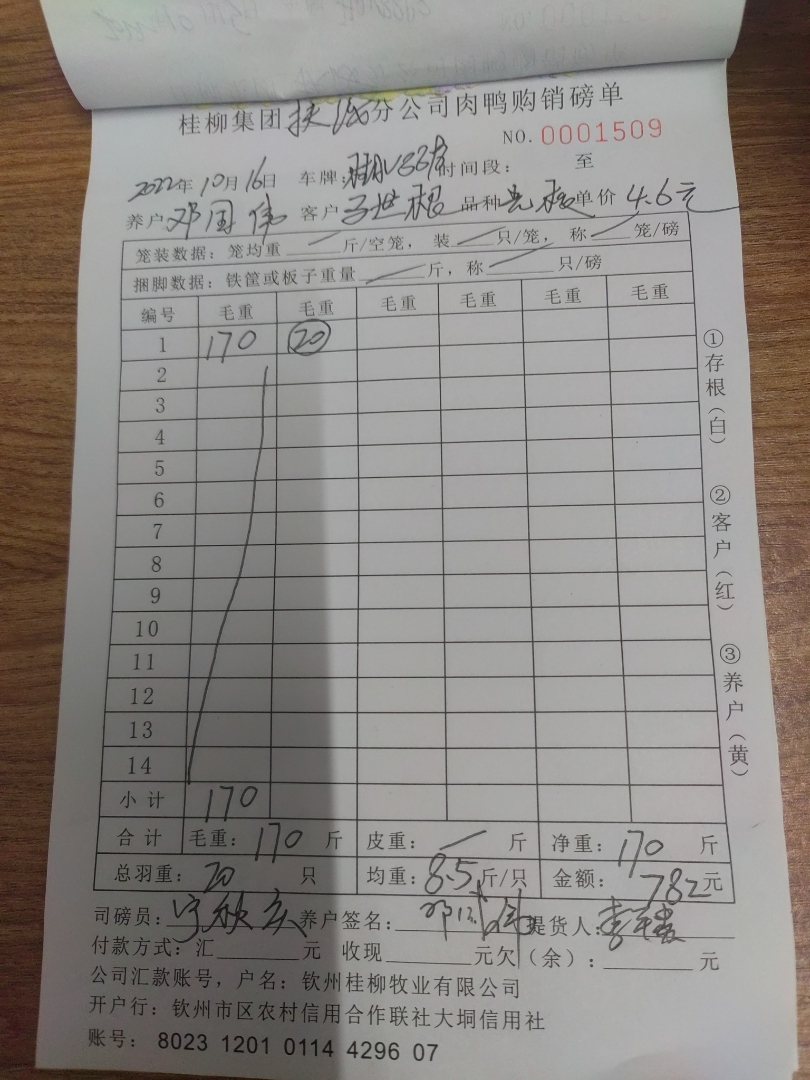 桂柳集团扶绥分公司肉鸭购销磅单
NO. 0001509
2022年10月16日 车牌: 时间段: 至
养户 邓国伟 客户 品种 单价 4.6元
笼装数据: 笼均重 斤/空笼, 装 只/笼, 称 笼/磅
捆脚数据: 铁筐或板子重量 斤, 称 只/磅
编号 毛重 毛重 毛重 毛重 毛重 毛重
1 170 20
2
3
4
5
6
7
8
9
10
11
12
13
14
小计 170
合计 毛重: 170 斤 皮重: 斤 净重: 170 斤
总羽重: 20 只 均重: 8.5 斤/只 金额: 782元
司磅员: 养户签名: 提货人:
付款方式: 汇 元 收现 元欠(余): 元
公司汇款账号, 户名: 钦州桂柳牧业有限公司
开户行: 钦州市区农村信用合作联社大垌信用社
账号: 8023 1201 0114 4296 07
①存根(白)
②客户(红)
③养户(黄)